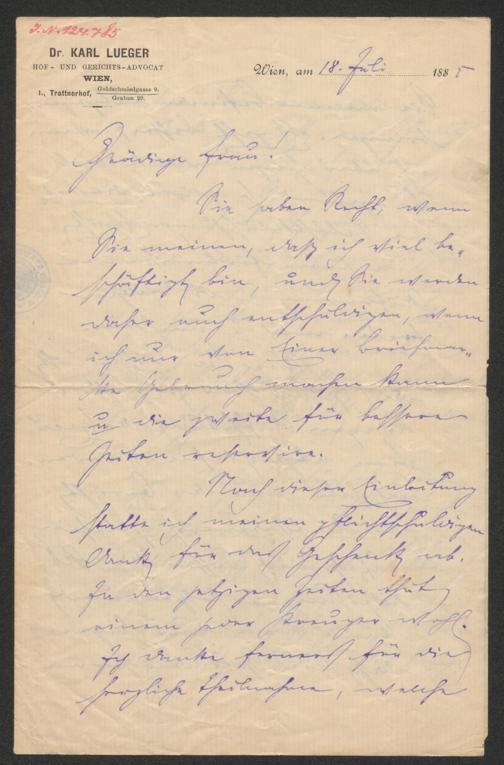 J.N. 124.785
Dr. KARL LUEGER
HOF- UND GERICHTS-ADVOCAT
WIEN,
I., Trattnerhof, Goldschmiedgasse 9.
Graben 29.
Wien, am 18. Juli 1885
Gnädige Frau!
Sie haben Recht, wenn
Sie meinen, daß ich viel be-
schäftigt bin, und Sie werden
daher auch entschuldigen, wenn
ich nur von Einer Briefmar-
ke Gebrauch machen kann
u die zweite für bessere
Zeiten reservire.
Nach dieser Einleitung
statte ich meinen pflichtschuldigen
Dank für das Geschenk ab.
In den jetzigen Zeiten thut
einem jeder Kreuzer wohl.
Ich danke ferners für die
herzliche Theilnahme, welche